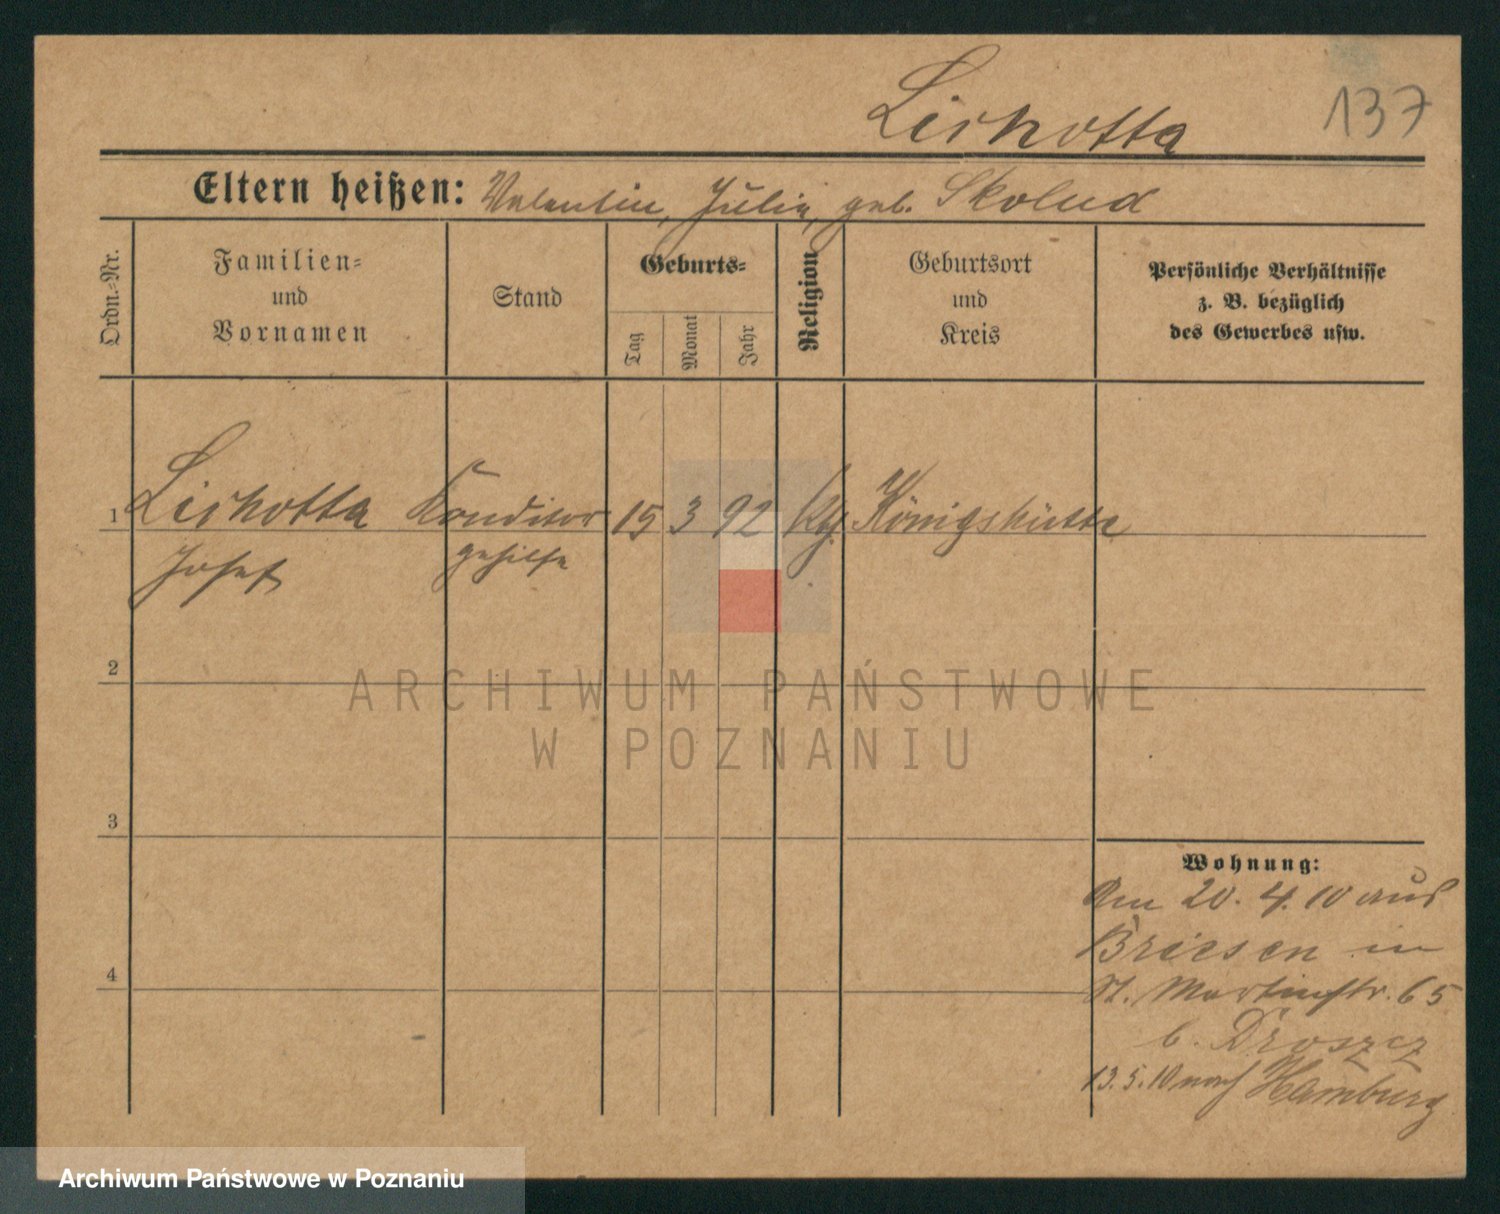 137
Lishotta
Eltern heißen: Valentin, Julie, geb. Skolud
Ordn.-Nr.
Familien-
und
Vornamen
Stand
Geburts-
Tag
Monat
Jahr
Religion
Geburtsort
und
Kreis
Persönliche Verhältnisse
z. B. bezüglich
des Gewerbes usw.
1 Lishotta Konditor 15 3 92 Königshütte
Josef gehilfe
2
ARCHIWUM PAŃSTWOWE
W POZNANIU
3
Wohnung:
Am 20. 4. 10 aus
Briesen in
St. Martinstr. 65
4
b. Droszcz
13. 5. 10 nach Hamburg
Archiwum Państwowe w Poznaniu